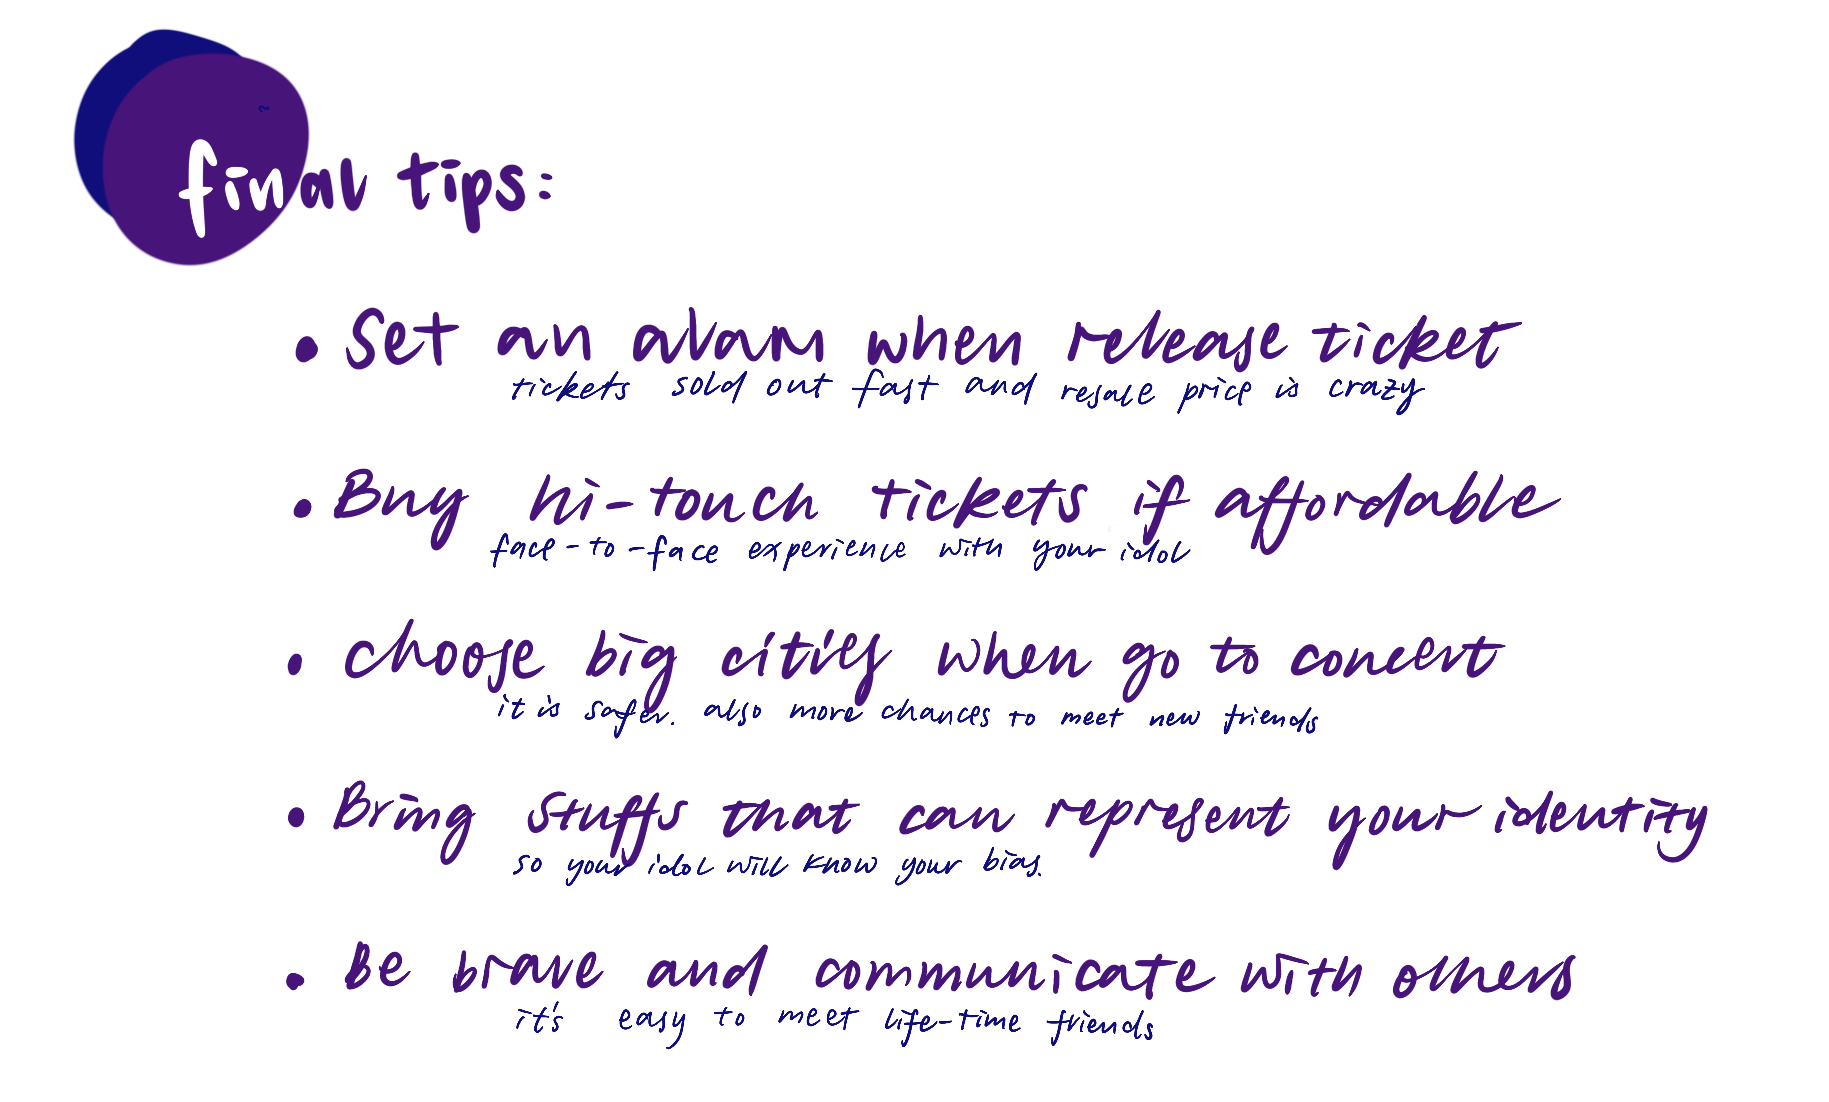 final tips:
• Set an alram when release ticket
tickets sold out fast and resale price is crazy
• Buy hi-touch tickets if affordable
face-to-face experience with your idol
• choose big cities when go to concert
it is safer. also more chances to meet new friends
• Bring stuffs that can represent your identity
so your idol will know your bias.
• Be brave and communicate with others
it's easy to meet life-time friends